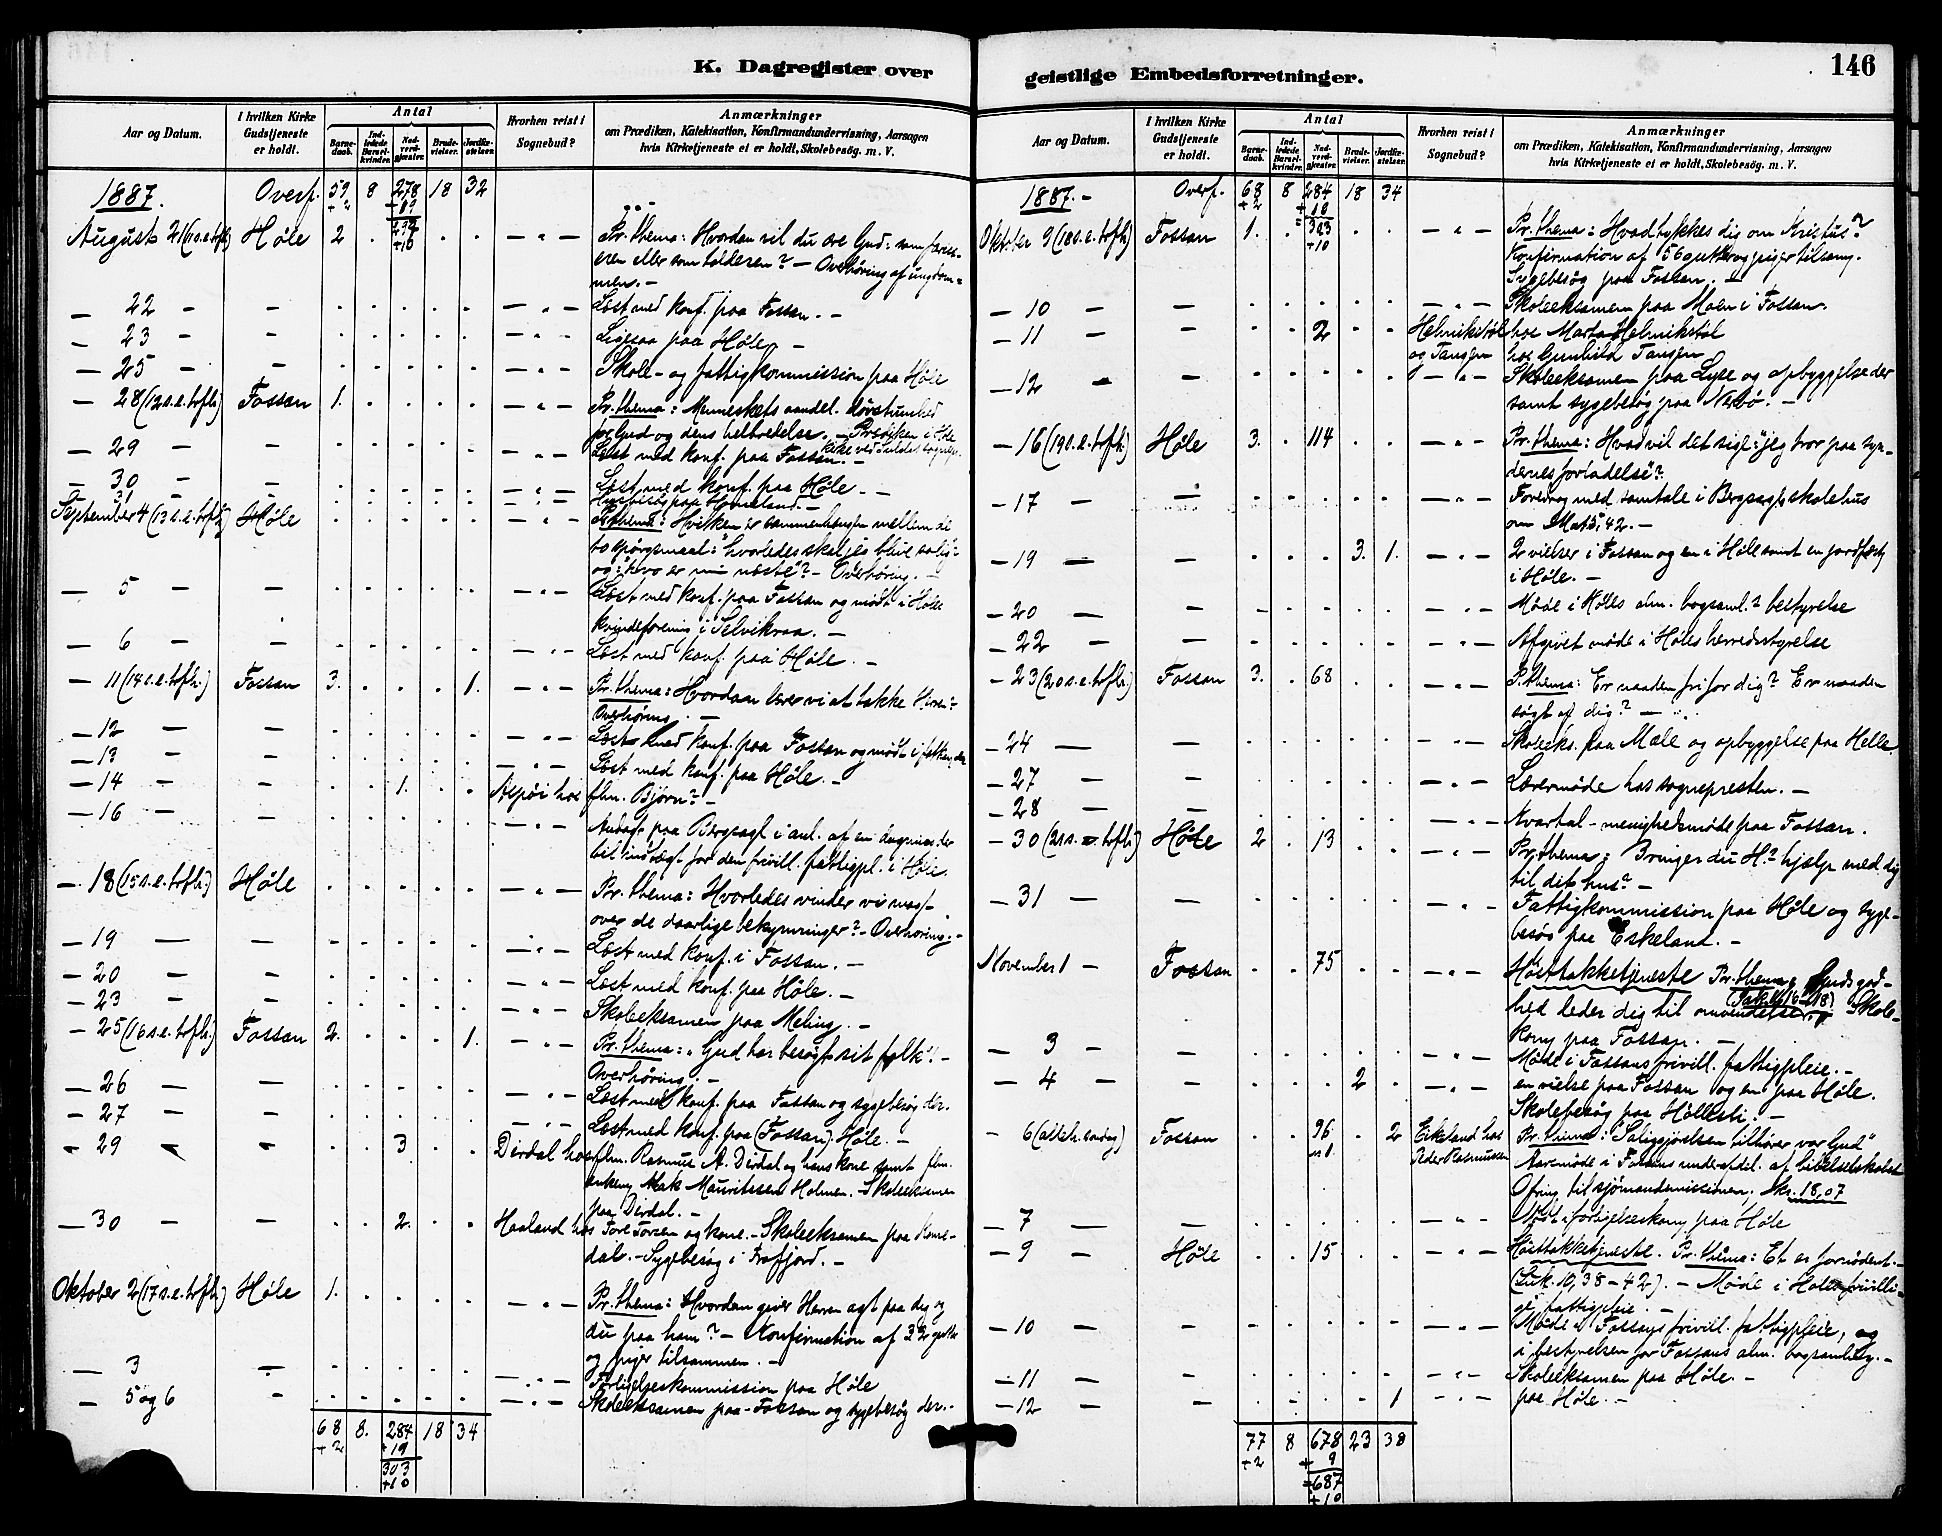 K. Dagregister over
Aar og Datum.
I hvilken Kirke Gudstjeneste er holdt.
Antal
Barnedaab.
Indledede Barselkvinder.
Nadverdgjester.
Brudevielser.
Jordfæstelser.
Hvorhen reist i Sognebud?
Anmærkninger
om Prædiken, Katekisation, Konfirmandundervisning, Aarsagen
hvis Kirketjeneste ei er holdt, Skolebesög. m. V.
1887. Overf. 59 8 278 18 32
August 21 (11 s. e. trefh) Høle 2 Pr. thema: Hvordan vil du ære Gud: som farisæ-
eren eller som tolderen? – Overhøring af ungdom-
men. –
– 22 – Læst med konf. paa Fossan. –
– 23 – Ligesaa paa Høle. –
– 25 – Skole- og fattigkommission paa Høle
– 28 (12 s. e. trefh) Fossan 1. Pr. thema: Menneskets aandel. døvstumhed
for Gud og dens helbredelse. – Prædiken i Høle
– 29 – Læst med konf. paa Fossan. –
– 30 – Læst med konf. paa Høle. –
31
September 4 (13 s. e. trefh) Høle Pr. thema: Hvilken er sammenhængen mellem de
to spørgsmaal: "hvorledes skal jeg blive salig"
og: "hvo er min næste"? – Overhøring. –
– 5 – Læst med konf. paa Fossan og mødt i Høle
kvindeforening i Selvikraa. –
– 6 – Læst med konf. paa Høle. –
– 11 (14 s. e. trefh.) Fossan 3. 1. Pr. thema: Hvordan lærer vi at takke Herren?
Overhøring. –
– 12 – Læst med konf. paa Fossan og mødt i
– 13 – Læst med konf. paa Høle. –
– 14 – 1. Aspøi hos flm. Bjørn? –
– 16 – paa Bergsagt i anl. af en
til indtægt for den frivill. fattigpl. i Høle.
– 18 (15 s. e. trefh.) Høle Pr. thema: Hvorledes vinder vi magt
over de daarlige bekymringer? – Overhøring. –
– 19 – Læst med konf. i Fossan. –
– 20 – Læst med konf. paa Høle. –
– 23 – Skoleeksamen paa Meling. –
– 25 (16 s. e. trefh.) Fossan 2. 1. Pr. thema: "Gud har besøgt sit folk"! –
Overhøring. –
– 26 – Læst med konf. paa Fossan og sygebesøg der.
– 27 – Læst med konf. paa (Fossan) Høle. –
– 29 – 3 Dirdal hos flm. Rasmus A. Dirdal og hans kone samt flm.
enkem. Mauritssen Holmen. – Skoleeksamen
paa Dirdal. –
– 30 – 2. Haaland hos Tore Torsen og kone. – Skoleeksamen paa
dal. – Sygebesøg i Frafjord. –
Oktober 2 (17 s. e. trefh) Høle 1. Pr. thema: Hvordan giver Herren agt paa dig og
du paa ham? – Konfirmation af 32 gutter
og piger tilsammen. –
– 3 – Forligelseskommission paa Høle
– 5 og 6 – Skoleeksamen paa Fossan og sygebesøg der. –
68 8. 284 18 34
+ 2 + 19
303
+ 10
geistlige Embedsforretninger.
146
Aar og Datum.
I hvilken Kirke Gudstjeneste er holdt.
Antal
Barnedaab.
Indledede Barselkvinder.
Nadverdgjester.
Brudevielser.
Jordfæstelser.
Hvorhen reist i Sognebud?
Anmærkninger
om Prædiken, Katekisation, Konfirmandundervisning, Aarsagen
hvis Kirketjeneste ei er holdt, Skolebesög. m. V.
1887. – Overf. 68 8 284 18 34
Oktober 9 (18 s. e. trefh) Fossan 1. Pr. thema: Hvad tykkes dig om Kristus?
Konfirmation af 56 gutter og piger tilsam.
Sygebesøg paa Fossan. –
– 10 – Skoleeksamen paa Moen i Fossan.
– 11 – 2 Helmikstøl hos Marta Helmikstøl
og Tangen hos Gunhild Tangen
– 12 – Skoleeksamen paa Lyse og opbyggelse der
samt sygebesøg paa Nesbø. –
– 16 (19 s. e. trefh.) Høle 3. 114 Pr. thema: Hvad vil det sige: "jeg tror paa syn-
dernes forladelse"?
– 17 – Foredrag med samtale i Bergsagel skolehus
om Mat. 5, 42. –
– 19 – 3. 1. 2 vielser i Fossan og en i Høle samt en jordfæst.
i Høle. –
– 20 – Møde i Høles alm. bogsaml.s bestyrelse
– 22 – Afgivet møde i Høles herredsstyrelse
– 23 (20 s. e. trefh.) Fossan 3. 68 P. thema: Er naaden fri for dig? Er naaden
søgt af dig? –
– 24 – Skoleeks. paa Mæle og opbyggelse paa Helle.
– 27 – Lærermøde hos sognepresten. –
– 28 – Kvartal-menighedsmøde paa Fossan.
– 30 (21 s. e. trefh) Høle 2 13 Pr. thema: Bringer du H.s hjælp med dig
til dit hus? –
– 31 – Fattigkommission paa Høle og syge-
besøg paa Eskeland. –
November 1 – Fossan 75 Høsttakketjeneste Pr. thema: Guds god-
hed leder dig til omvendelse. Skole-
kom. paa Fossan. –
– 3 – Møde i Fossans frivill. fattigpleie. –
– 4 – 2 en vielse paa Fossan og en paa Høle.
Skolebesøg paa Høllesli. –
– 6 (alleh. søndag) Fossan 96 2 Eikeland hos Peder Rasmussen Pr. thema: "Saliggjørelsen tilhører vor Gud"
Aarsmøde i Fossans underafdel. af bibelselskabet
Ofring til sjømandsmissionen. Kr. 18,07
– 7 – Mødt i forligelseskom. paa Høle
– 9 – Høle 15 Høsttakketjeneste. Pr. thema: Et er fornødent. –
(Luk. 10, 38–42). – Møde i Høles frivilli-
ge fattigpleie. –
– 10 – Møde i Fossans frivill. fattigpleie, og
i bestyrelsen for Fossans alm. bogsamling. –
– 11 – Skoleeksamen paa Høle. –
– 12 – 1 paa Høle. –
77 8 678 23 38
+ 2 + 9
= 687
+ 10